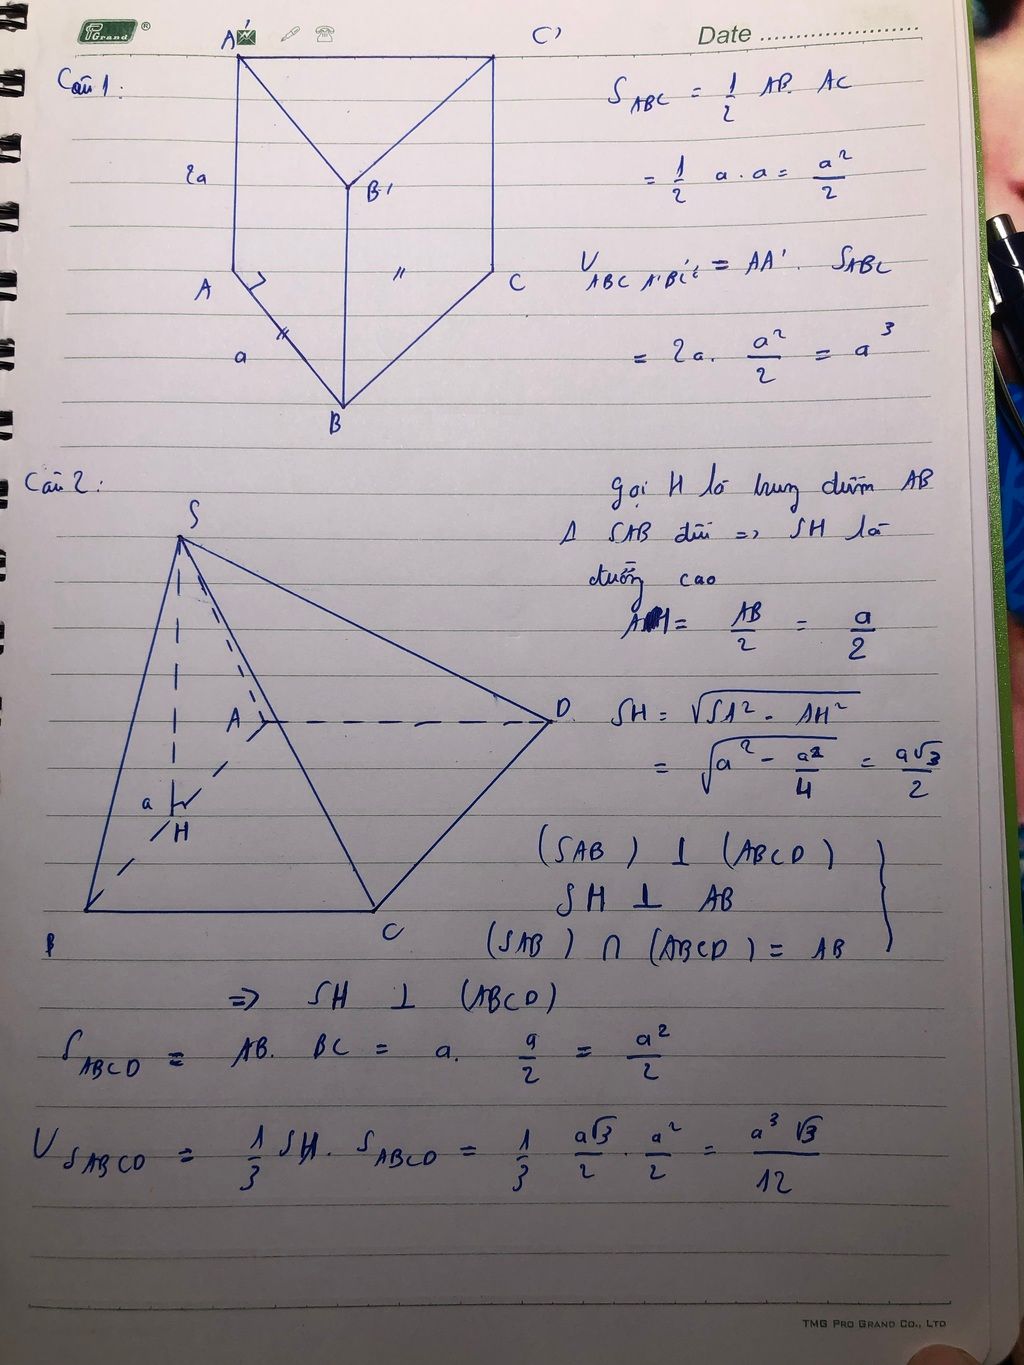 PGrand ®
Date
Câu 1:
A'
C'
2a
B'
A
C
a
B
S_ABC = 1/2 AB. AC
= 1/2 a . a = a²/2
V_ABC A'B'C' = AA' . S_ABC
= 2a. a²/2 = a³
Câu 2:
S
A
D
a
H
B
C
Gọi H là trung điểm AB
Δ SAB đều => SH là
đường cao
AH = AB/2 = a/2
SH = √(SA² - AH²)
= √(a² - a²/4) = a√3/2
(SAB) ⊥ (ABCD)
SH ⊥ AB
(SAB) ∩ (ABCD) = AB
=> SH ⊥ (ABCD)
S_ABCD = AB. BC = a. a/2 = a²/2
V_SABCD = 1/3 SH. S_ABCD = 1/3 a√3/2 . a²/2 = a³√3/12
TMG PRO GRAND CO., LTD